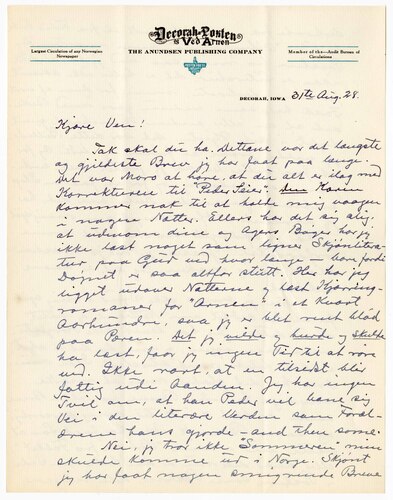 Decorah-Posten
Ved Arnen
Largest Circulation of any Norwegian
Newspaper
THE ANUNDSEN PUBLISHING COMPANY
Member of the—Audit Bureau of
Circulations
DECORAH, IOWA 31te Aug. 28.
Kjære Ven!
Tak skal du ha. Dettane var det længste
og gjildeste Brev jeg har faat paa lange.
Det var Moro at høre, at du alt er islag med
Korrekturene til "Peder Seier".
kommer nok til at holde mig vaagen
i nogen Nætter. Ellers har det sig slig,
at utenom dine og Agers Bøger har jeg
ikke læst noget som ligner Skjønlitera-
tur paa Gud ved hvor længe — bare fordi
Døgnet er saa altfor stutt. Her har jeg
ligget utover Nætterne og læst Kjærrings-
romaner for "Arnen" i et Kvart
Aarhundre, saa jeg er blet rent blad
paa Børen. Det jeg vilde og burde og skulde
ha læst, faar jeg ingen Tid til at røre
ved. Ikke rart, at en tilsidst blir
fattig uti Aanden. Jeg har ingen
Tvil om, at han Peder vil bane sig
Vei i den literære Verden som Foræl-
drene hans gjorde — and then some.
Nei, jeg tror ikke "Sommeren" min
skulde komme ut i Norge. Skjønt
jeg har faat nogen smigrende Breve